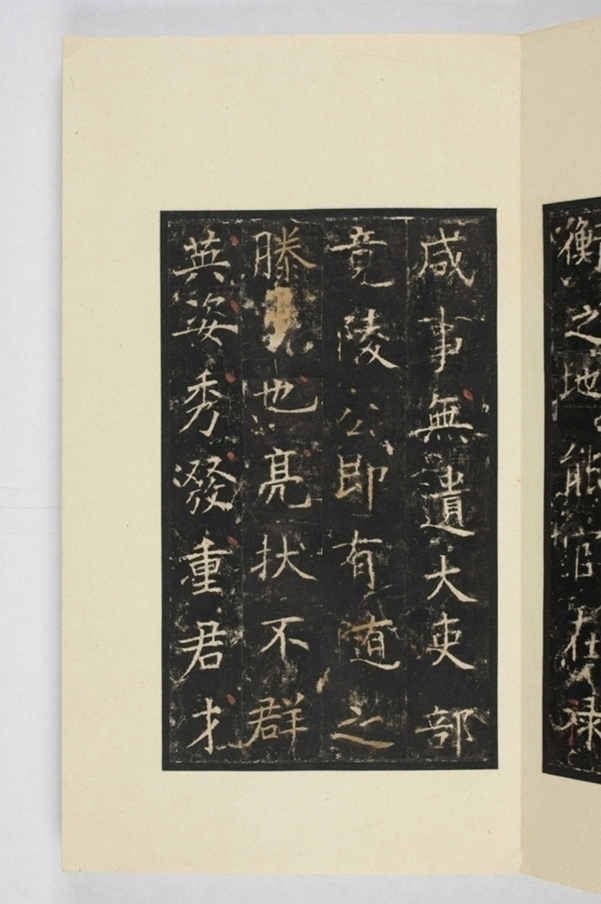 衡之地能官在祿
咸事無遺大吏部
竟陵公即有之
滕也亮狀不群
英姿秀發重君才